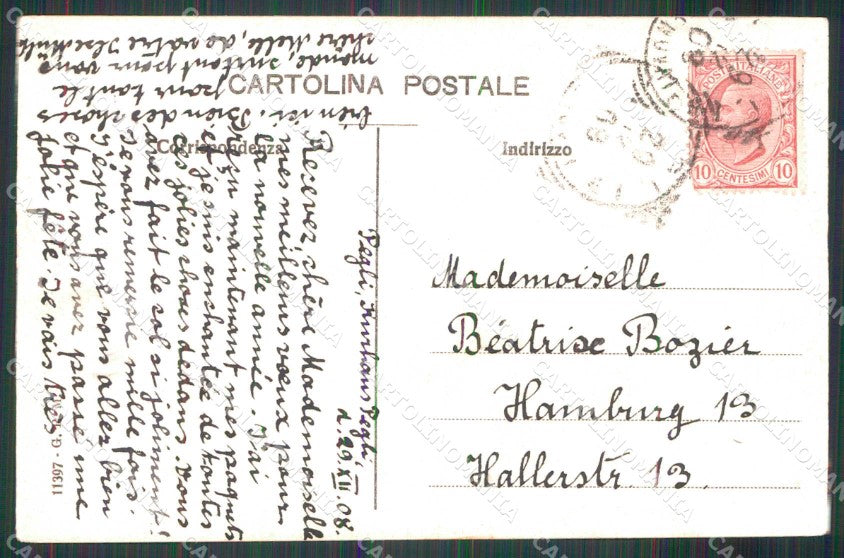 CARTOLINA POSTALE
Corrispondenza
Indirizzo
POSTE ITALIANE
10 CENTESIMI 10
Pegli, Kurhaus Pegli,
d. 29.XII.08.
Recevez chère Mademoiselle
mes meilleurs vœux pour
la nouvelle année. J'ai
reçu maintenant mes paquets
et je suis enchantée de toutes
ces jolies choses dedans. Vous
avez fait le col si joliment!
Je vous remercie mille fois.
J'espère que vous allez bien
et que vous avez passé une
jolie fête. Je vais très
bien ici. Bien des choses
pour tout le
monde, surtout pour vous
chère Melle, de votre
Mademoiselle
Béatrise Bozier
Hamburg 13
Hallerstr. 13.
11397 - G.
CARTOLINOMANIA